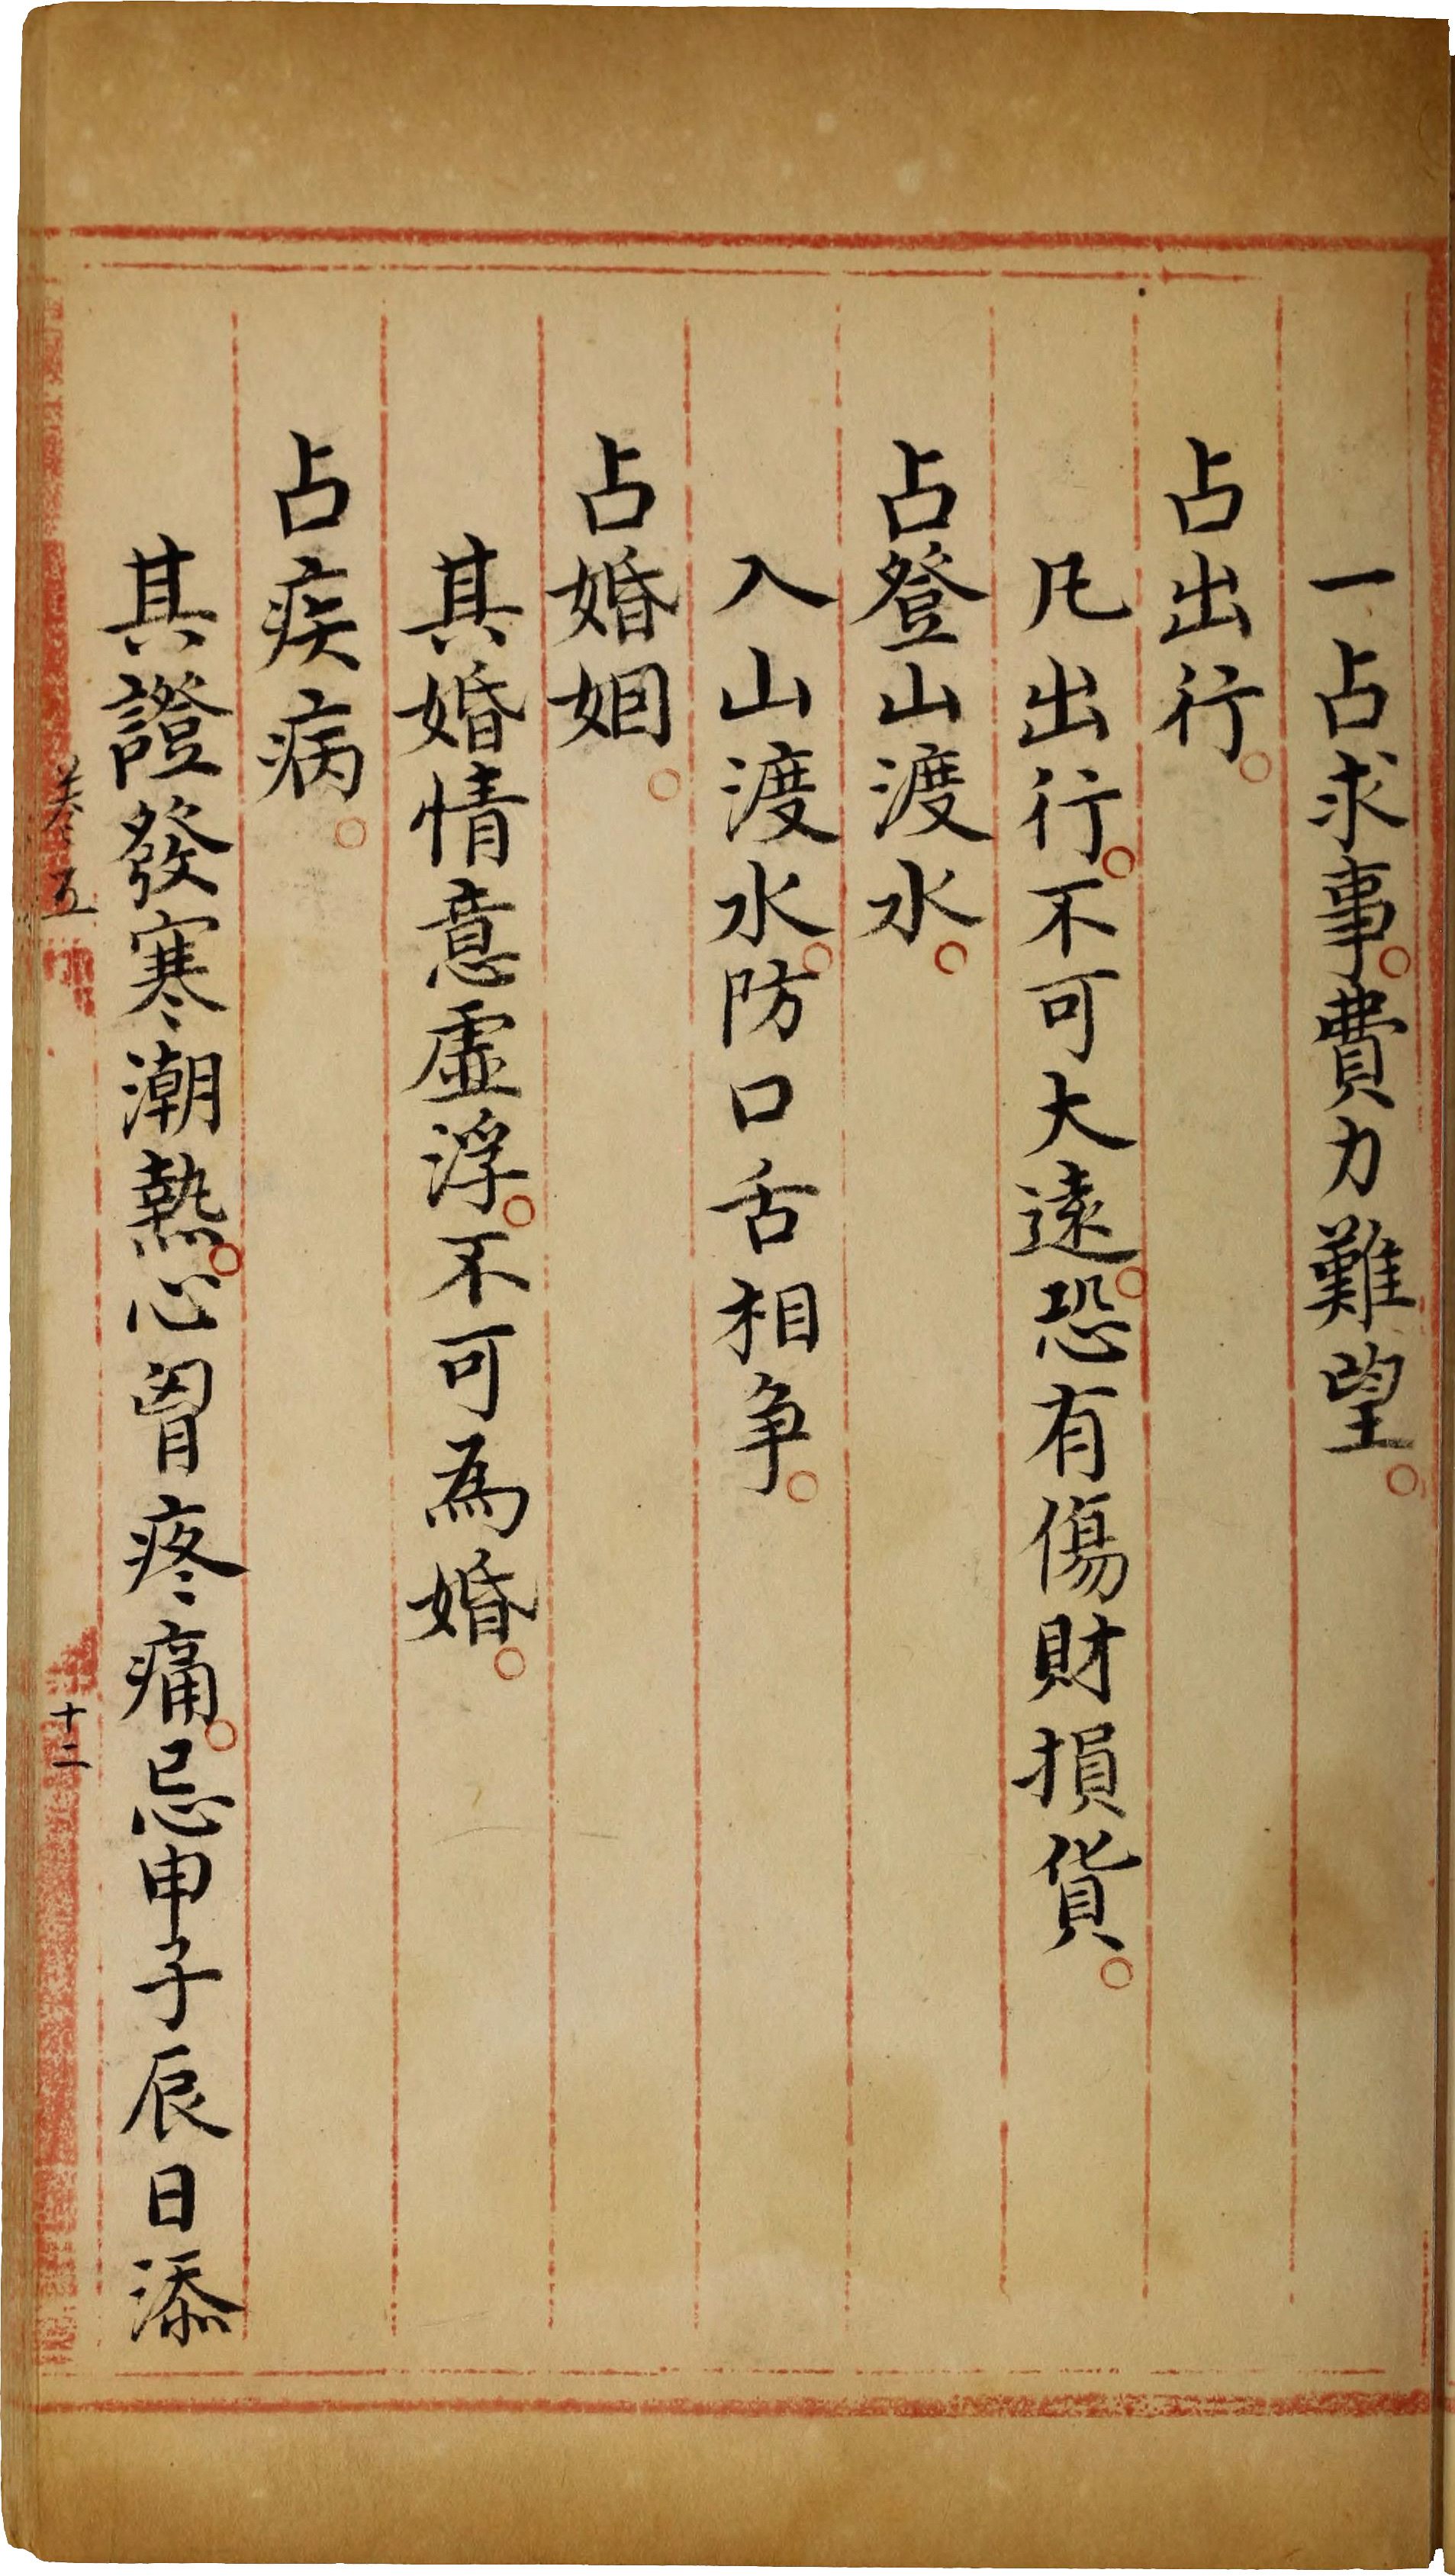 一占求事。費力難望。
占出行。
凡出行。不可大遠。恐有傷財損貨。
占登山渡水。
入山渡水。防口舌相爭。
占婚姻。
其婚情意虛浮。不可為婚。
占疾病。
其證發寒潮熱。心胷疼痛。忌申子辰日添
卷五
十二